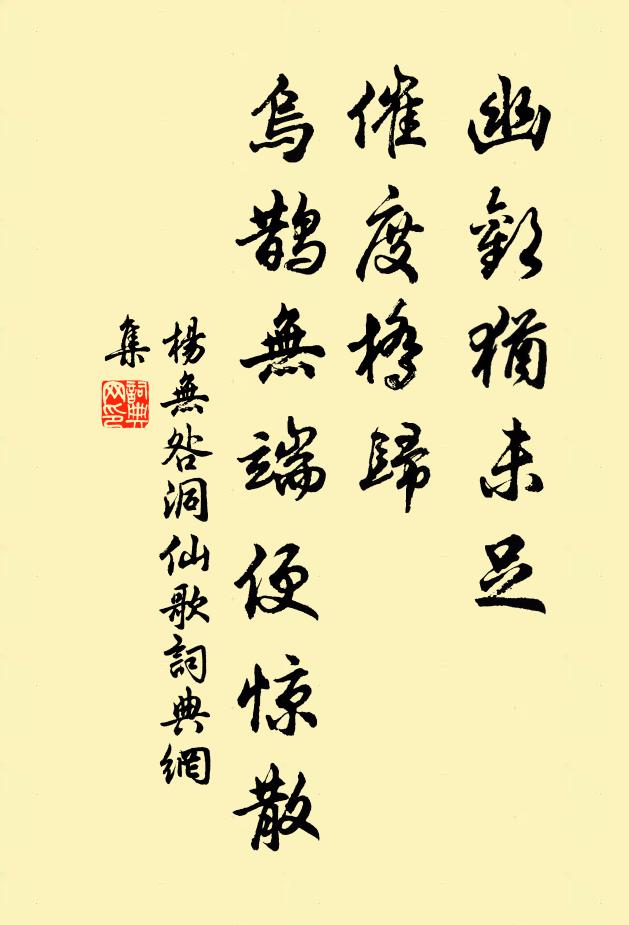 幽歡猶未足
催度橋歸
烏鵲無端便惊散
楊無咎洞仙歌詞典網
集
詞典
网印